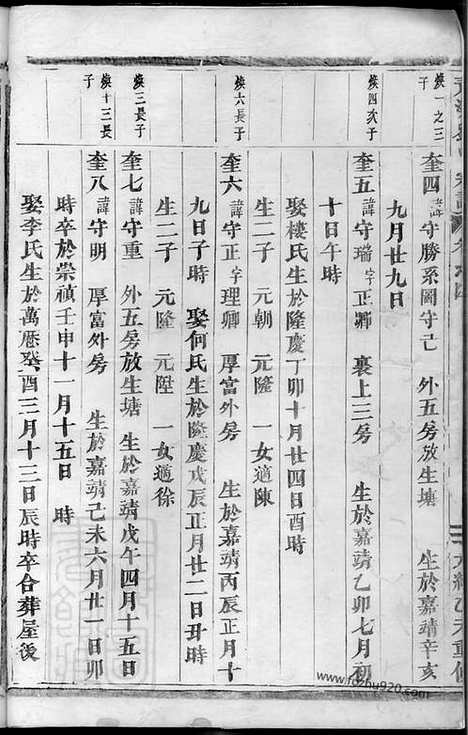 煥一之三子
奎四 諱守勝系圖守己 外五房放生塘 生於嘉靖辛亥
九月廿九日
煥四次子
奎五 諱守瑞字正卿 裏上三房 生於嘉靖乙卯七月初
十日午時
娶樓氏生於隆慶丁卯十月廿四日酉時
生二子 元朝 元隆 一女適陳
煥六長子
奎六 諱守正字理卿 厚富外房 生於嘉靖丙辰正月十
九日子時 娶何氏生於隆慶戊辰正月廿二日丑時
生二子 元隆 元陞 一女適徐
煥三長子
奎七 諱守重 外五房放生塘 生於嘉靖戊午四月十五日
煥十三長子
奎八 諱守明 厚富外房 生於嘉靖己未六月廿一日卯
時卒於崇禎壬申十一月十五日 時
娶李氏生於萬曆癸酉三月十三日辰時卒合葬屋後
www.fozhu920.com